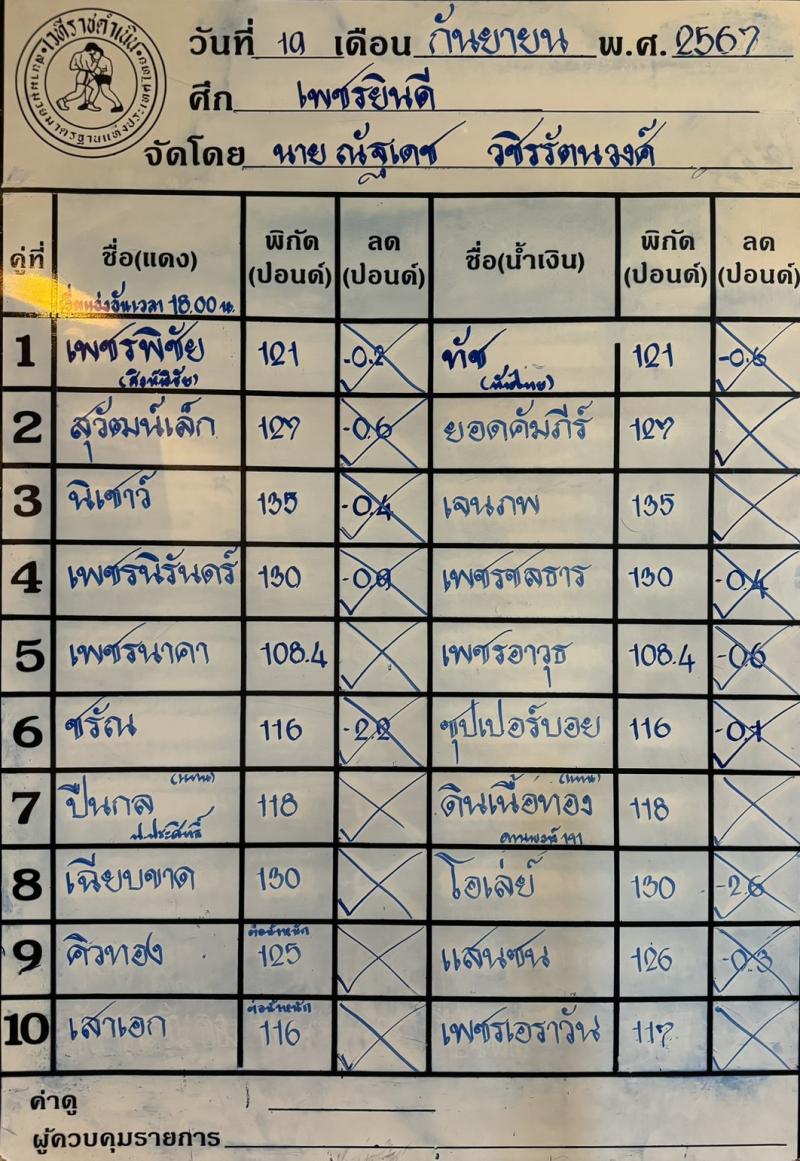 เวทีราชดำเนิน
สนามมวยมาตรฐานแห่งประเทศไทย
วันที่ 19 เดือน กันยายน พ.ศ. 2567
ศึก เพชรยินดี
จัดโดย นาย ณัฐเดช วชิรรัตนวงศ์
คู่ที่ ชื่อ(แดง) พิกัด (ปอนด์) ลด (ปอนด์) ชื่อ(น้ำเงิน) พิกัด (ปอนด์) ลด (ปอนด์)
เวลา 18.00 น.
1 เพชรพิชัย 121 -0.2 ทัช 121 -0.6
2 สุวัฒน์เล็ก 127 -0.6 ยอดคัมภีร์ 127
3 นิเชาว์ 135 -0.4 เจนภพ 135
4 เพชรนิรันดร์ 130 เพชรชลธาร 130 -0.4
5 เพชรนาคา 108.4 เพชรอาวุธ 108.4 -0.6
6 ชรัณ 116 -2.2 ซุปเปอร์บอย 116 -0.1
(แทน) (แทน)
7 ปืนกล 118 ดินเนื้อทอง 118
ป.ประสิทธิ์
8 เฉียบขาด 130 โอเล่ย์ 130 -2.6
ต่อน้ำหนัก
9 คิวทอง 125 แสนชน 126 -0.3
ต่อน้ำหนัก
10 เสาเอก 116 เพชรเอราวัน 117
ค่าดู
ผู้ควบคุมรายการ